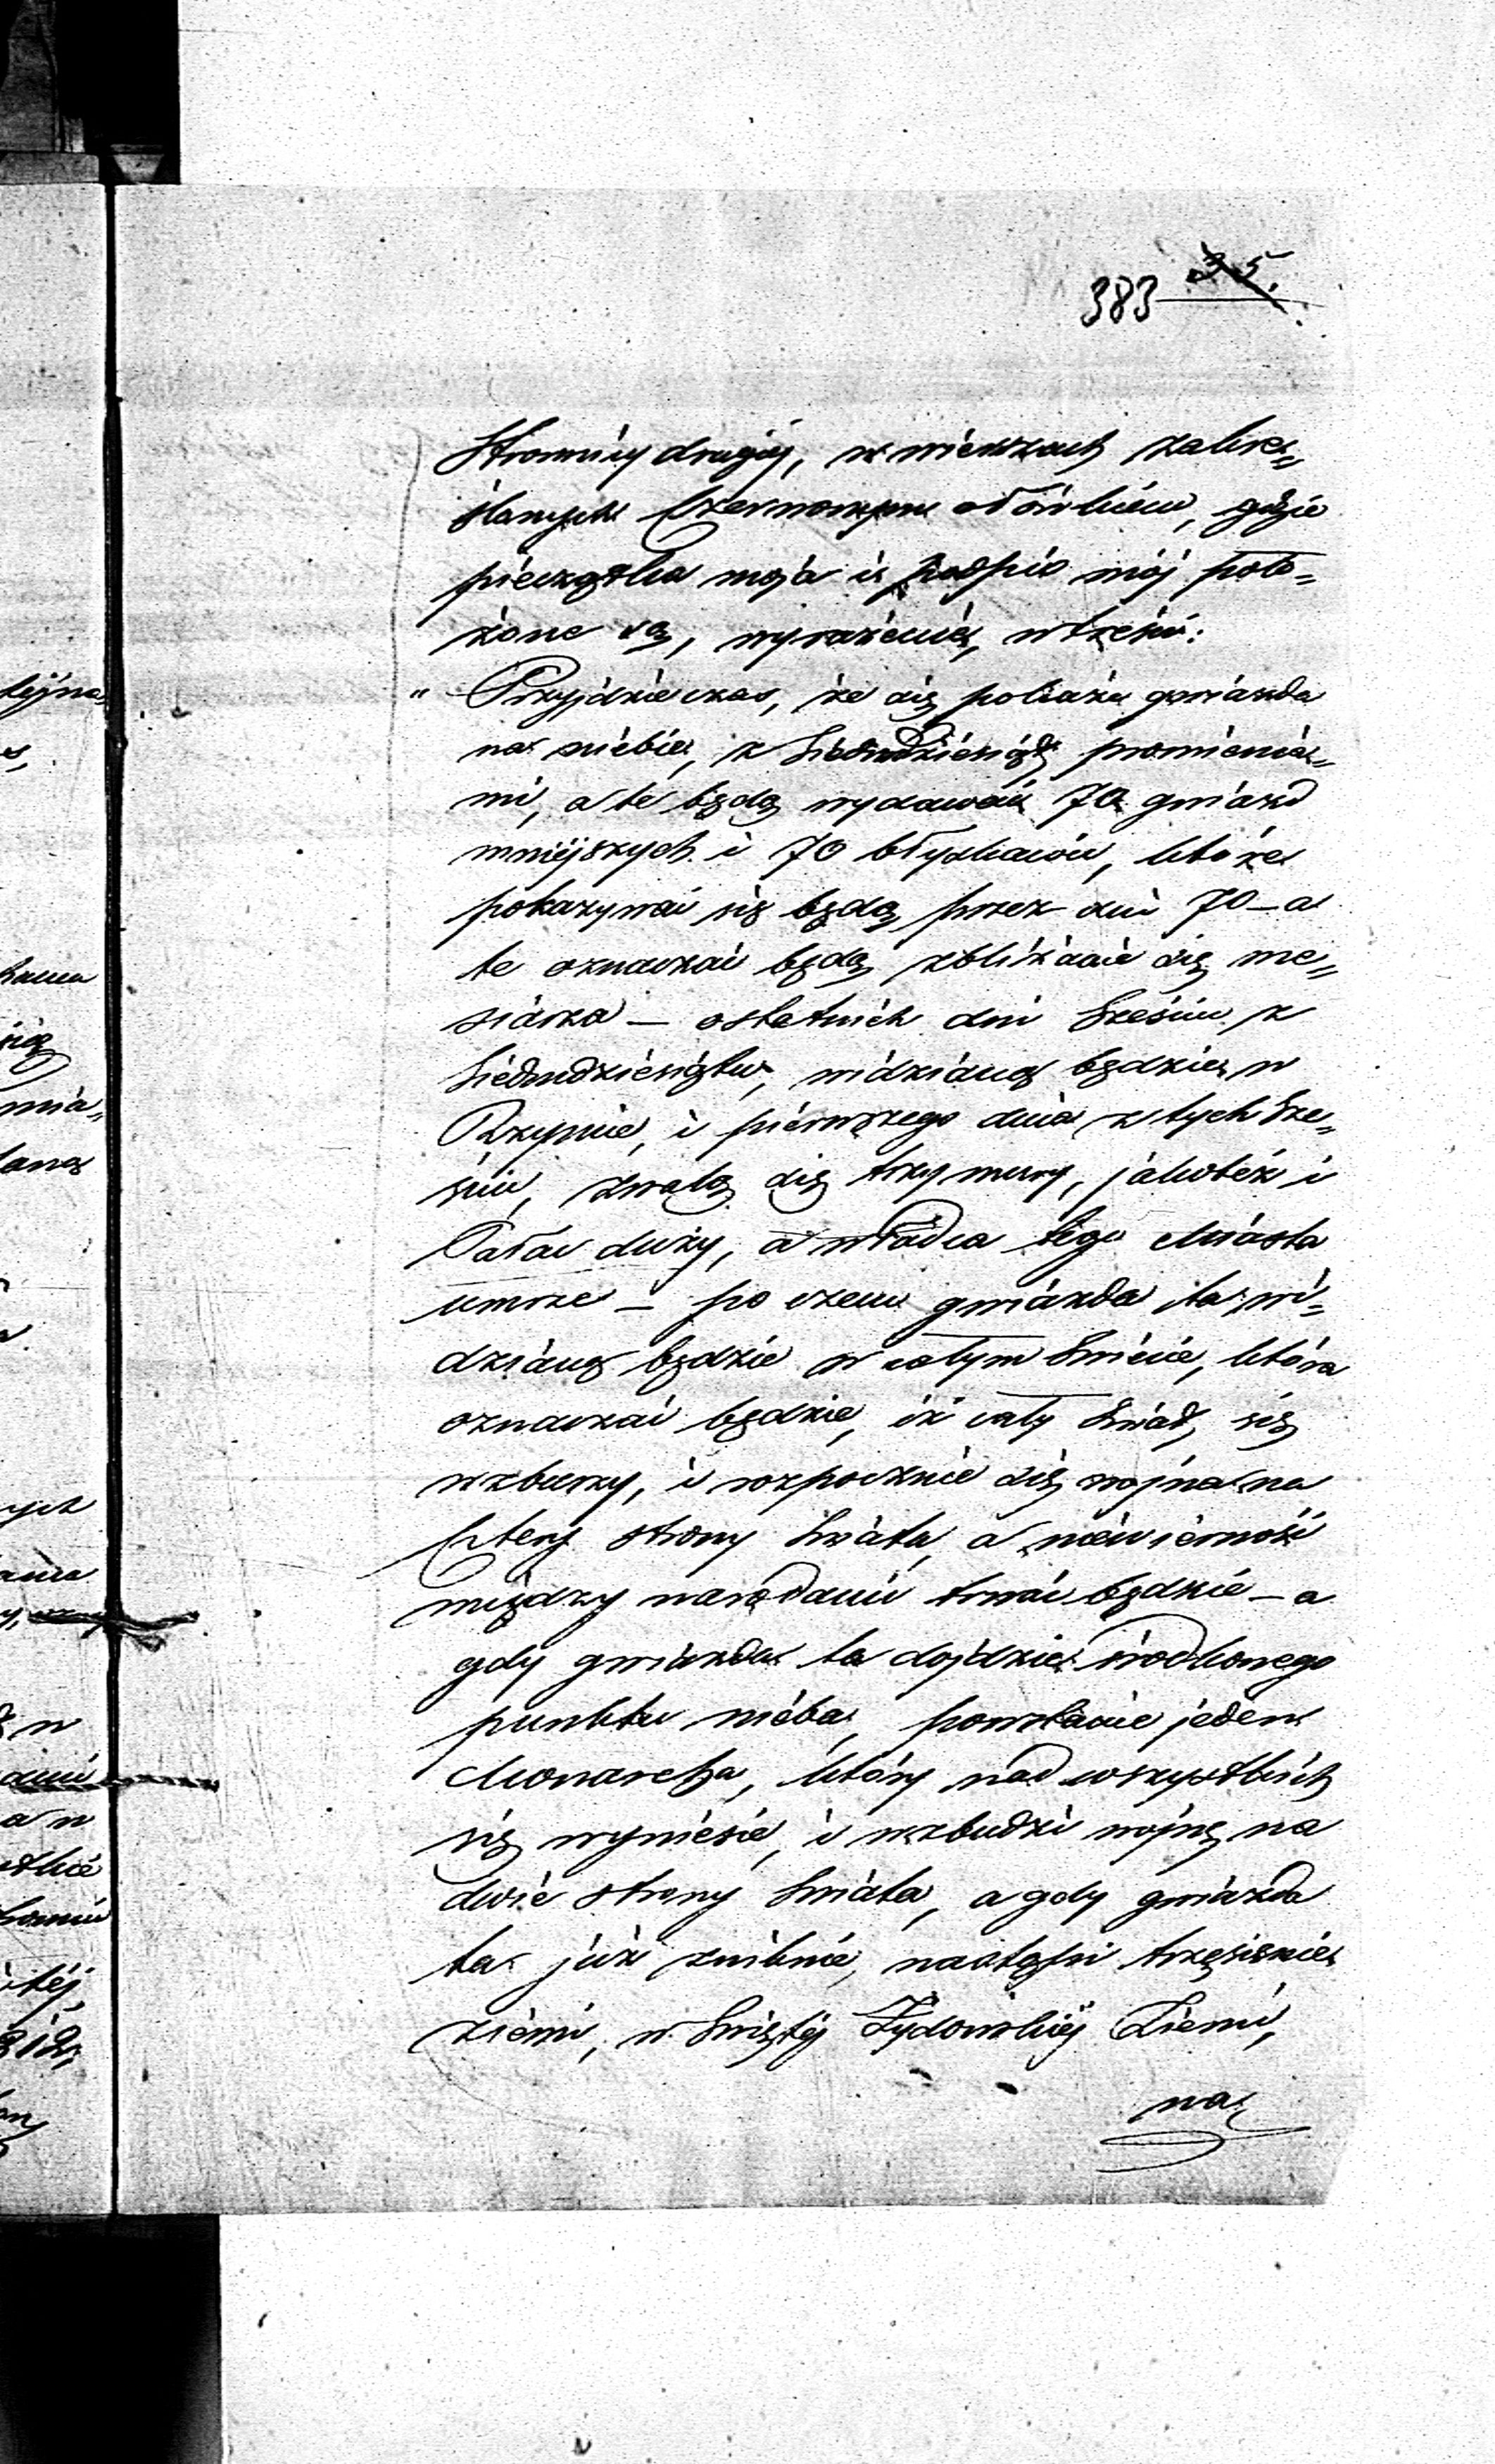 383 35.
Stronnicy drugiéj, w wierszach zakre„
ślanych Czerwonym ołówkiem, gdzie
pieczątka moja i podpis mój poło-
żone są, wyrażenie, w treści:
„ Przyjdzie czas, że się pokaże gwiazda
na niebie, z Siedmdziesiąt promienia„
mi, a te będą wydawać 70 gwiazd
mniéjszych i 70 błyskawic, które
pokazywać się będą przez dni 70 – a
te oznaczać będą zbliżanie się me„
siasza – ostatnich dni Sześciu z
Siedmdziesiątu, widzianą będzie w
Rzymie, i pierwszego dnia z tych Sze„
ściu, zwalą się trzy mury, jakoteż i
Pałac duży, a władca tego Miasta
umrze – po czem gwiazda ta wi„
dzianą będzie w całym Świecie, która
oznaczać będzie, iż cały Świat się
wzburzy, i rozpocznie się wojna na
Cztery strony Świata, a niewierność
między narodami trwać będzie – a
gdy gwiazda ta dojdzie środkowego
punktu nieba, powstanie jeden
Monarcha, który nad wszystkich
się wyniesie, i wzbudzi wojnę na
dwie strony Świata, a gdy gwiazda
ta już zniknie, nastąpi trzęsienie
ziemi, w Świętéj Żydowskiéj Ziemi,
na